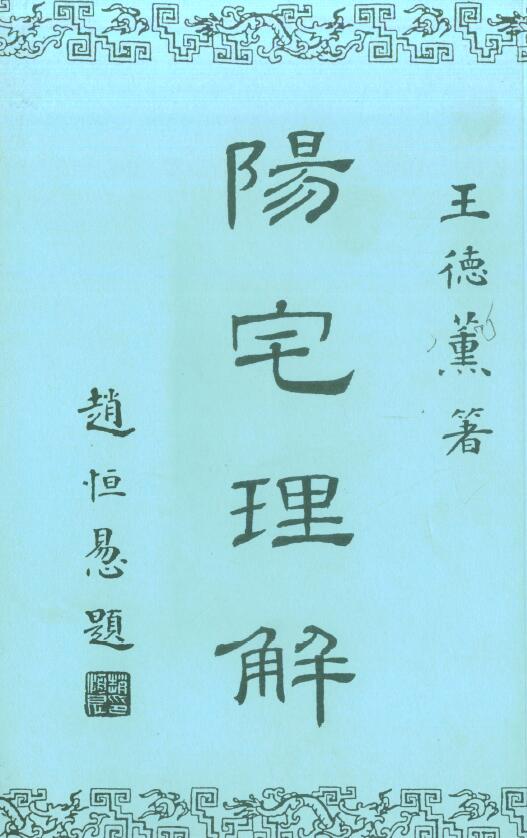 王德薰箸
陽宅理解
趙恒惖題